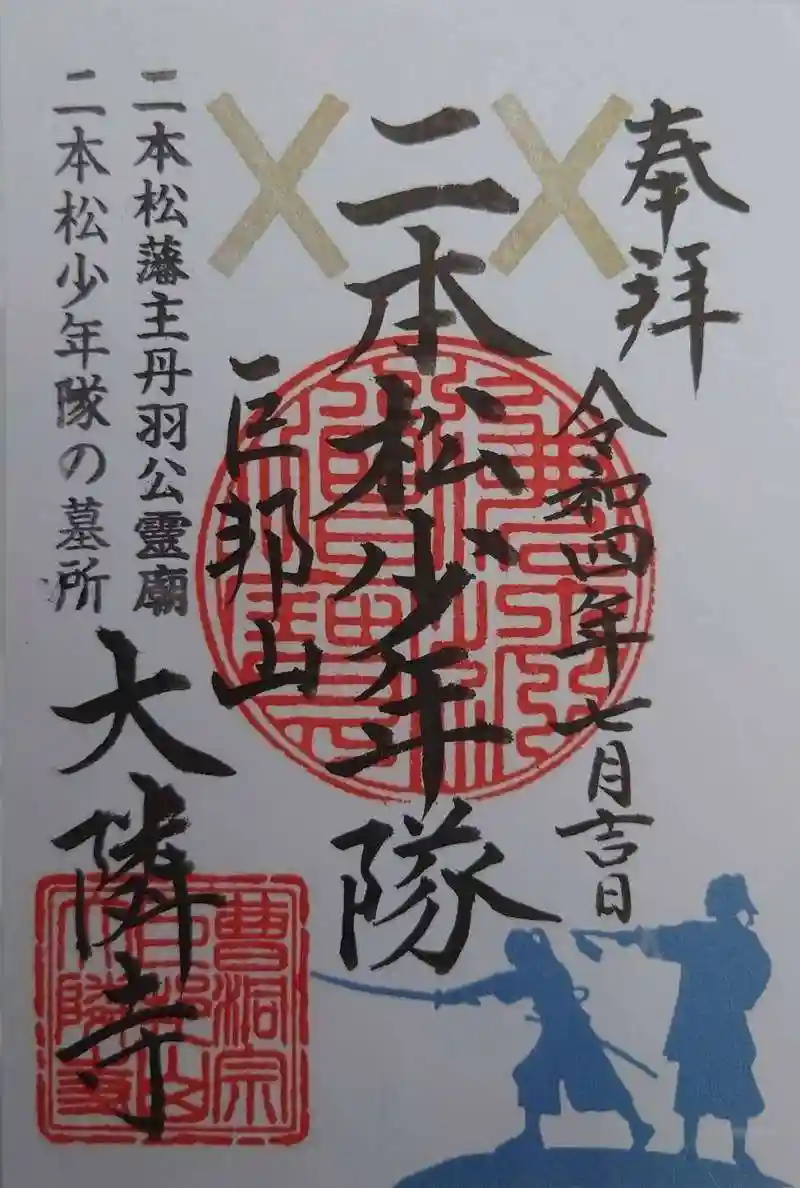 奉拝
令和四年七月吉日
二本松少年隊
巨邦山
二本松藩主丹羽公靈廟
二本松少年隊の墓所
大隣寺
曹洞宗
巨邦山
大隣寺